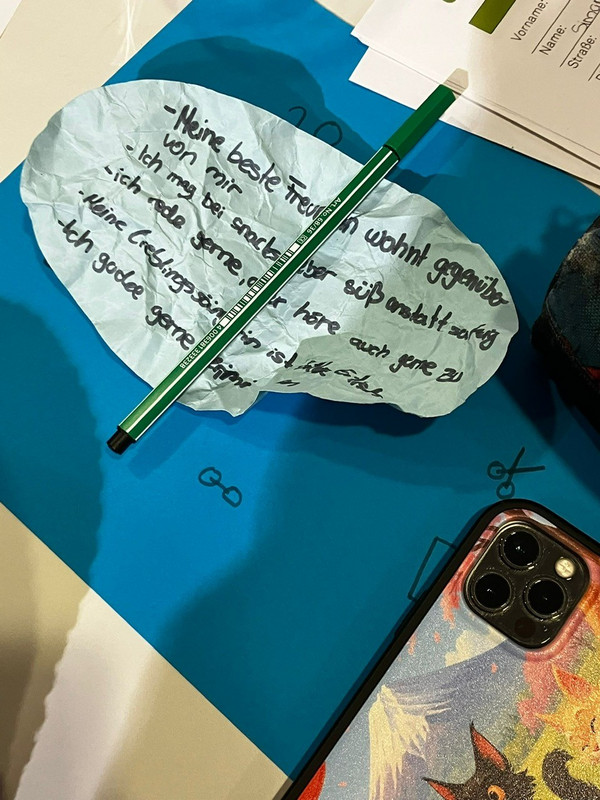 Vorname:
Name:
Straße:
- Meine beste Freundin wohnt gegenüber
von mir
- Ich mag bei snacks lieber süß anstatt salzig
- ich rede gerne, aber höre auch gerne zu
- Meine Lieblingssängerin ist
- Ich gehe gerne
Art. No 68/36
4 00638 1 333238